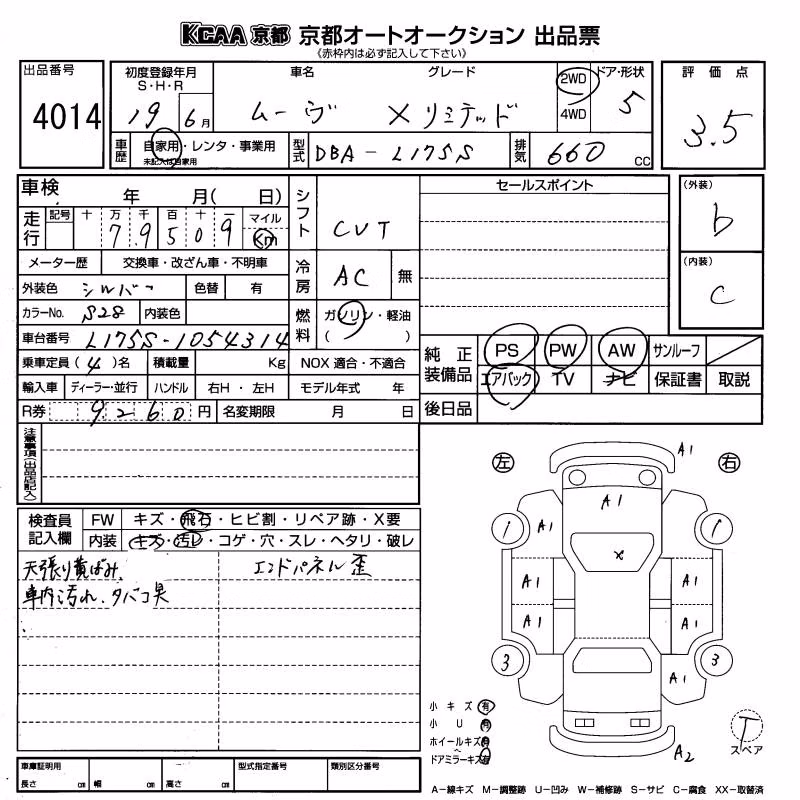 KCAA 京都 京都オートオークション 出品票
《赤枠内は必ず記入して下さい》
出品番号 4014
初度登録年月 S・H・R 19 6月
車名 ムーヴ
グレード Xリミテッド
2WD 4WD
ドア・形状 5
評価点 3.5
車歴 自家用・レンタ・事業用
未記入は自家用
型式 DBA-L175S
排気 660 CC
車検 年 月( 日)
走行 記号 十 万 千 百 十 一 マイル Km
7 9 5 0 9
シフト CVT
セールスポイント
(外装) b
(内装) C
メーター歴 交換車・改ざん車・不明車
冷房 AC 無
外装色 シルバー 色替 有
カラーNo. S28 内装色
燃料 ガソリン・軽油
( )
車台番号 L175S-1054314
乗車定員(4)名 積載量 Kg NOX適合・不適合
純正装備品 PS PW AW サンルーフ
エアバック TV ナビ 保証書 取説
輸入車 ディーラー・並行 ハンドル 右H・左H モデル年式 年
R券 9260円 名変期限 月 日
後日品
注意事項(出品店記入)
左 右
検査員記入欄 FW キズ・飛石・ヒビ割・リペア跡・X要
内装 キズ・汚レ・コゲ・穴・スレ・ヘタリ・破レ
天張り黄ばみ、 エンドパネル歪
車内汚れ、タバコ臭
A1
A1
1 A1 1
×
A1 A1
A1 A1
3 A1 3
A2
小キズ 有
小U 有
ホイールキズ 有
ドアミラーキズ 有
T
スペア
車庫証明用 長さ cm 幅 cm 高さ cm
型式指定番号 類別区分番号
A−線キズ M−調整跡 U−凹み W−補修跡 S−サビ C−腐食 XX−取替済